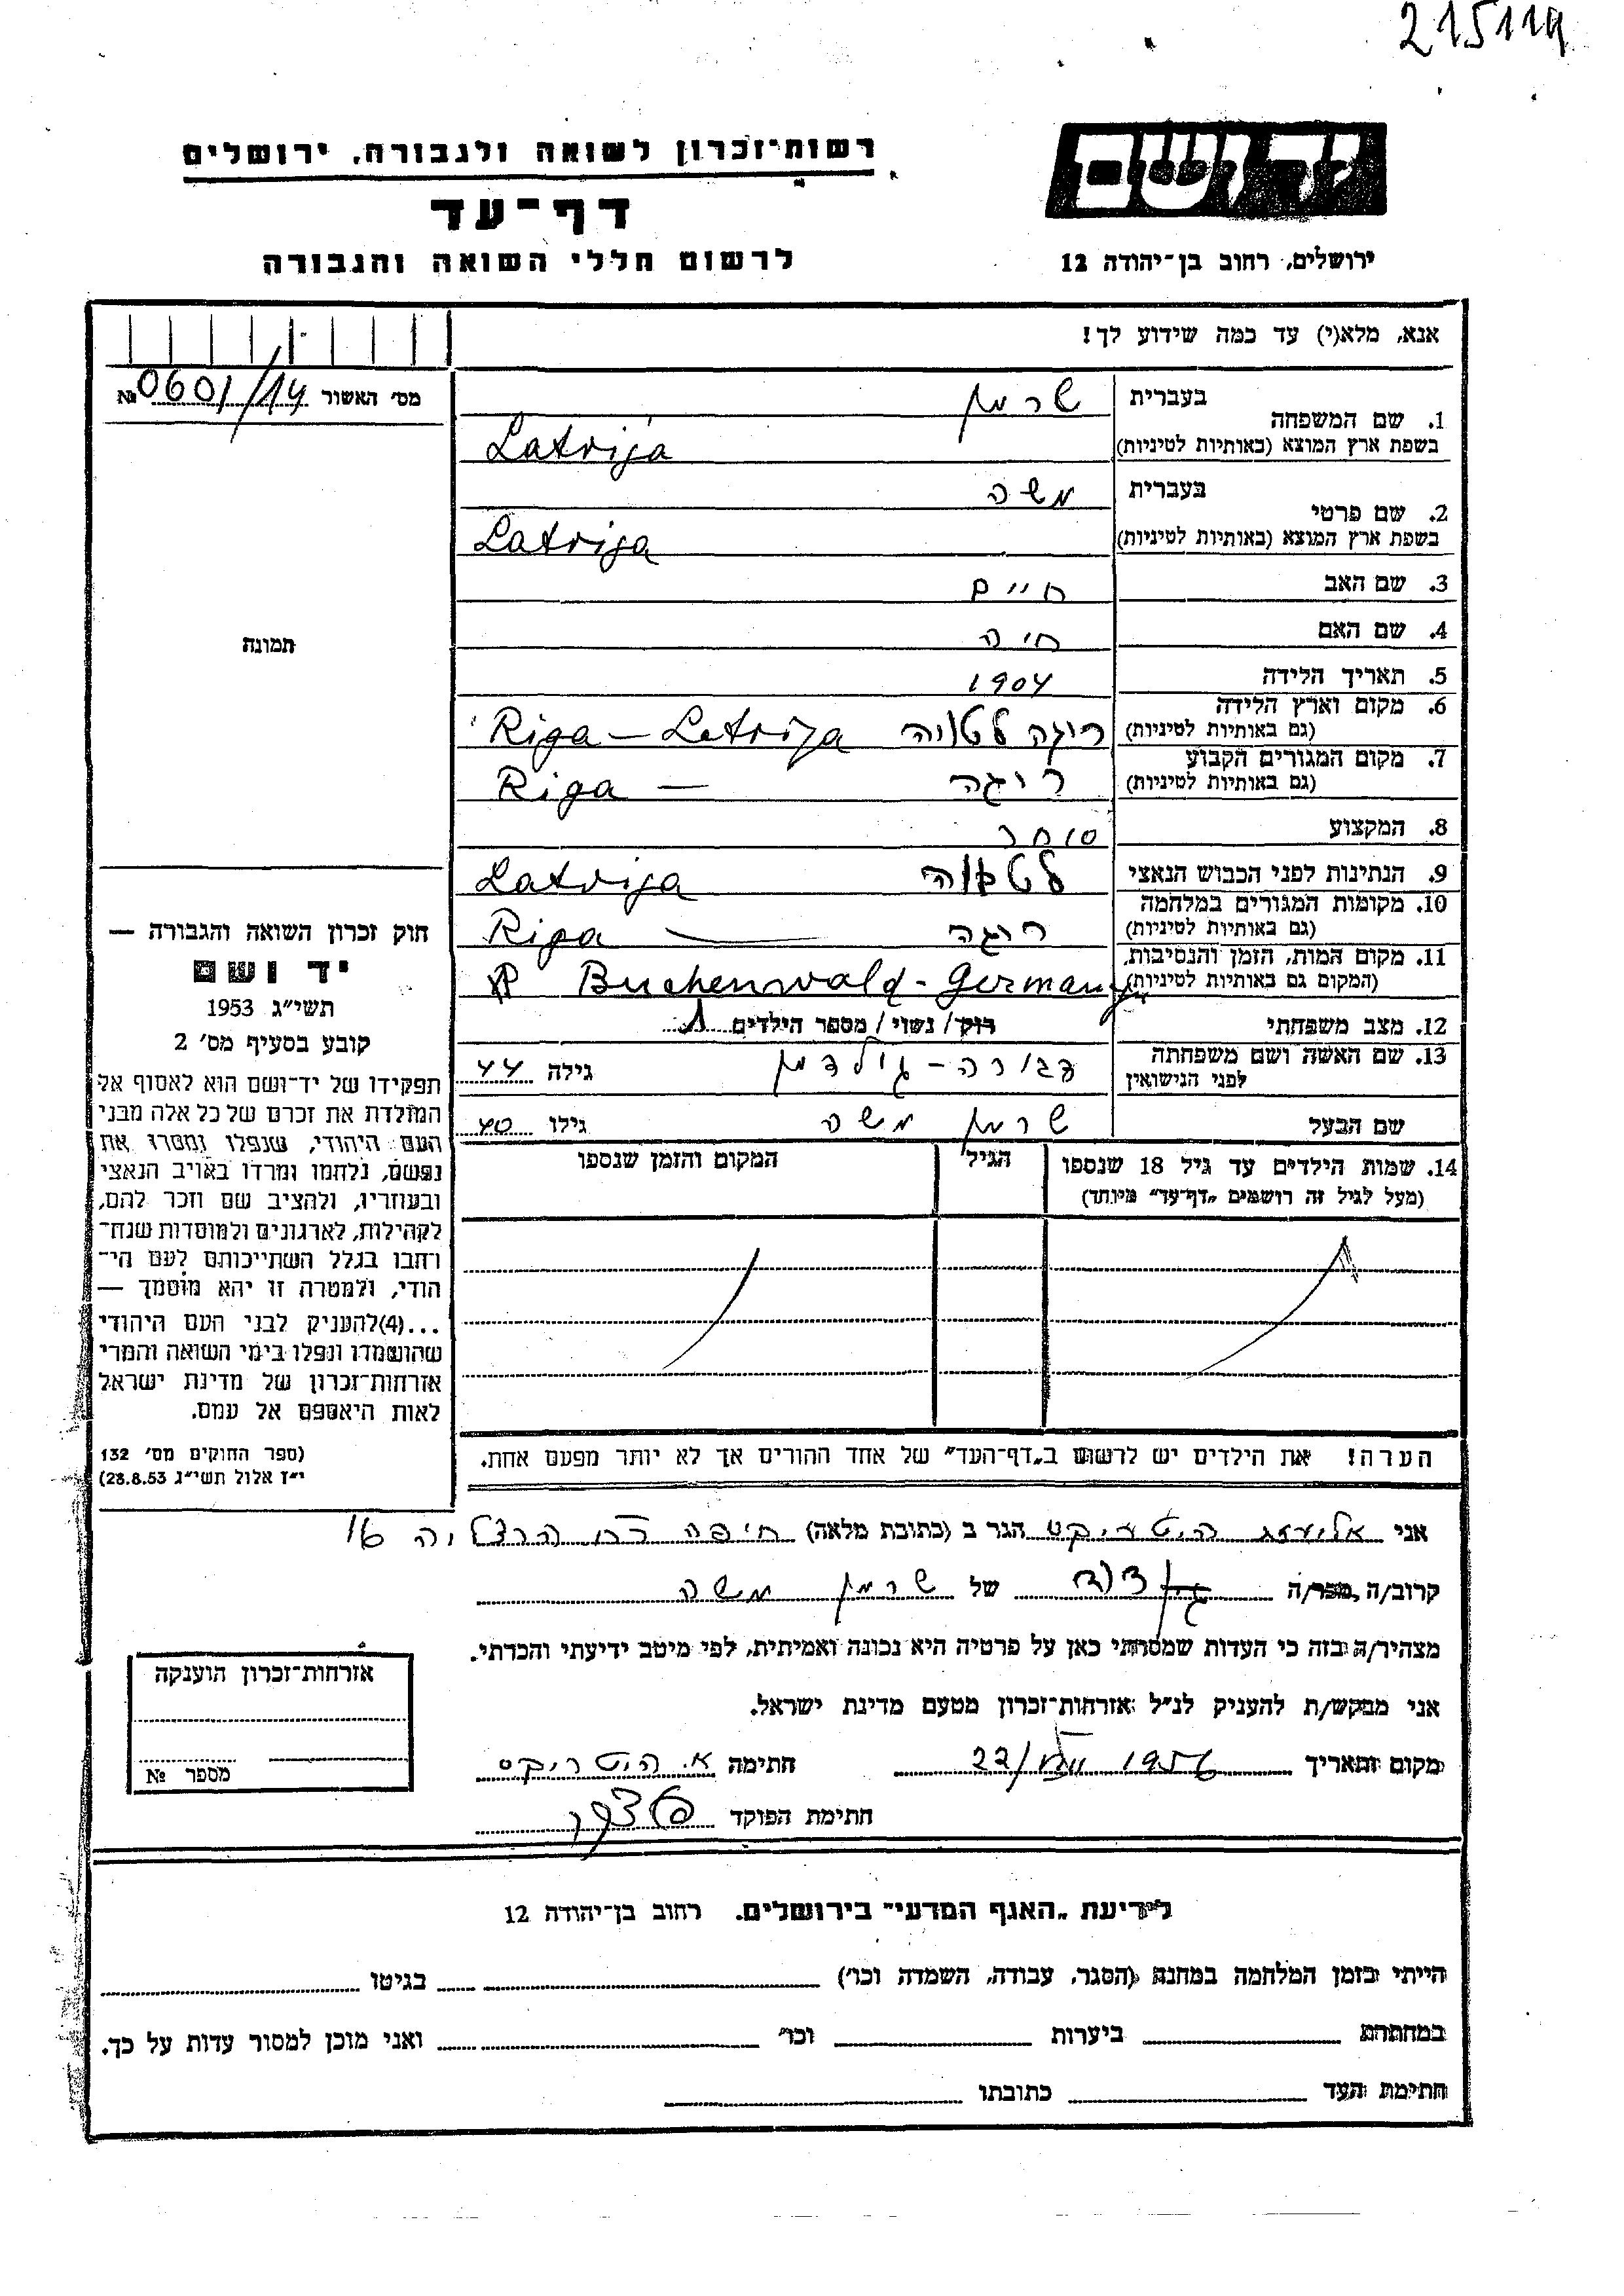 215119
יד ושם
רשות־זכרון לשואה ולגבורה, ירושלים
דף־עד
לרשום חללי השואה והגבורה
ירושלים, רחוב בן־יהודה 12
אנא, מלא(י) עד כמה שידוע לך!
מס׳ האשור 0601/14 №
1. שם המשפחה
בעברית שרמן
בשפת ארץ המוצא (באותיות לטיניות) Latvija
2. שם פרטי
בעברית משה
בשפת ארץ המוצא (באותיות לטיניות) Latvija
3. שם האב חיים
4. שם האם חיה
5. תאריך הלידה 1904
6. מקום וארץ הלידה
(גם באותיות לטיניות) ריגה לטויה Riga – Latvija
7. מקום המגורים הקבוע
(גם באותיות לטיניות) ריגה Riga –
8. המקצוע סוחר
9. הנתינות לפני הכבוש הנאצי לטויה Latvija
10. מקומות המגורים במלחמה
(גם באותיות לטיניות) ריגה — Riga
11. מקום המות, הזמן והנסיבות,
(המקום גם באותיות לטיניות) Buchenwald - Germany
12. מצב משפחתי רוק/ נשוי/ מספר הילדים
13. שם האשה ושם משפחתה
לפני הנישואין דבורה – גולדמן גילה 44
שם הבעל שרמן משה גילו 40
14. שמות הילדים עד גיל 18 שנספו
(מעל לגיל זה רושמים „דף־עד" מיוחד)
הגיל
המקום והזמן שנספו
תמונה
חוק זכרון השואה והגבורה —
יד ושם
תשי״ג 1953
קובע בסעיף מס׳ 2
תפקידו של יד־ושם הוא לאסוף אל
המולדת את זכרם של כל אלה מבני
העם היהודי, שנפלו ומסרו את
נפשם, נלחמו ומרדו באויב הנאצי
ובעוזריו, ולהציב שם וזכר להם,
לקהילות, לארגונים ולמוסדות שנח־
רחבו בגלל השתייכותם לעם הי־
הודי, ולמטרה זו יהא מוסמך —
...(4)להעניק לבני העם היהודי
שהושמדו ונפלו בימי השואה והמרי
אזרחות־זכרון של מדינת ישראל
לאות היאספם אל עמם.
(ספר החוקים מס׳ 132
י״ז אלול תשי״ג 28.8.53)
הערה! את הילדים יש לרשום ב„דף־העד" של אחד ההורים אך לא יותר מפעם אחת.
אני אליעזר הגר ב (כתובת מלאה) חיפה רח הרצליה 16
קרוב/ה מכר/ה דוד של שרמן משה
מצהיר/ה בזה כי העדות שמסרתי כאן על פרטיה היא נכונה ואמיתית, לפי מיטב ידיעתי והכרתי.
אני מבקש/ת להעניק לנ״ל אזרחות־זכרון מטעם מדינת ישראל.
מקום ותאריך 22/VIII 1956 חתימה
חתימת הפוקד
אזרחות־זכרון הוענקה
מספר №
לידיעת „האגף המדעי" בירושלים. רחוב בן־יהודה 12
הייתי בזמן המלחמה במחנה (הסגר, עבודה, השמדה וכו׳) בגיטו
במחתרת ביערות וכו׳ ואני מוכן למסור עדות על כך.
חתימת העד כתובתו